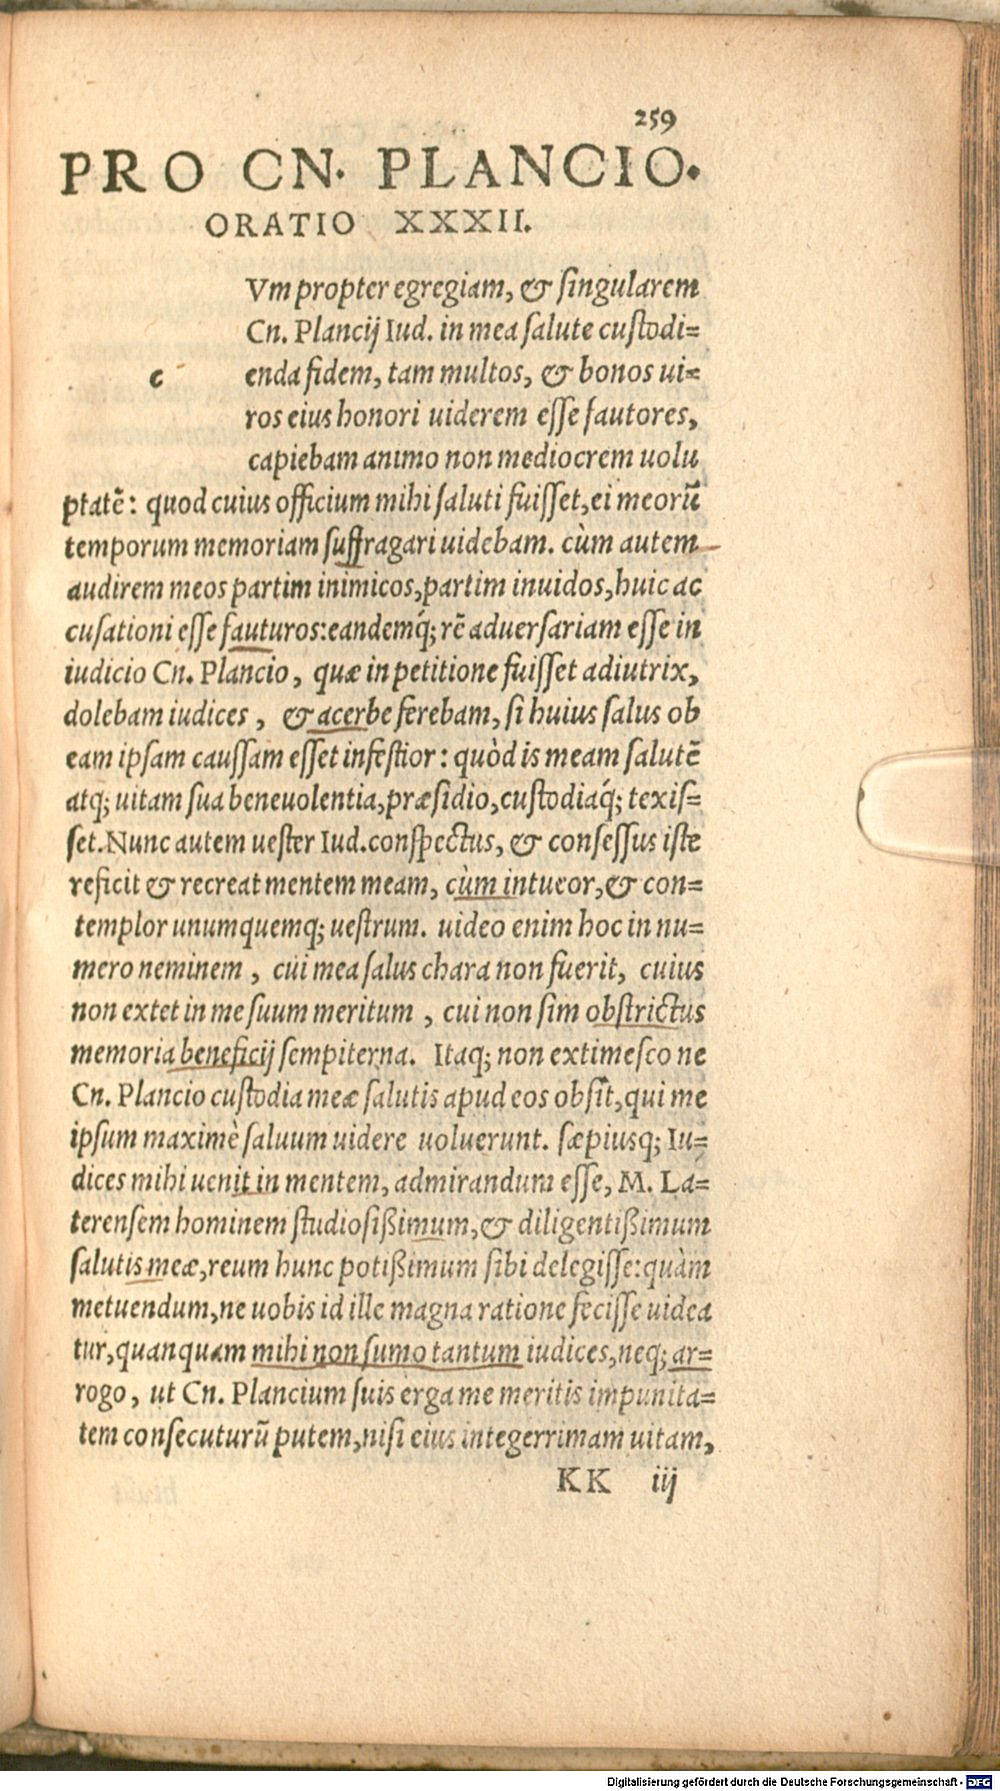 259
PRO CN. PLANCIO.
ORATIO XXXII.
Vm propter egregiam, & singularem
Cn. Plancij Iud. in mea salute custodi=
c enda fidem, tam multos, & bonos ui=
ros eius honori uiderem esse fautores,
capiebam animo non mediocrem uolu
ptatẽ: quod cuius officium mihi saluti fuisset, ei meorũ
temporum memoriam suffragari uidebam. cùm autem
audirem meos partim inimicos, partim inuidos, huic ac
cusationi esse fauturos: eandemq́; rẽ aduersariam esse in
iudicio Cn. Plancio, quæ in petitione fuisset adiutrix,
dolebam iudices, & acerbe ferebam, si huius salus ob
eam ipsam caussam esset infestior: quòd is meam salutẽ
atq; uitam sua beneuolentia, præsidio, custodiaq́; texis=
set. Nunc autem uester Iud. conspectus, & consessus iste
reficit & recreat mentem meam, cùm intueor, & con=
templor unumquemq; uestrum. uideo enim hoc in nu=
mero neminem, cui mea salus chara non fuerit, cuius
non extet in me suum meritum, cui non sim obstrictus
memoria beneficij sempiterna. Itaq; non extimesco ne
Cn. Plancio custodia meæ salutis apud eos obsit, qui me
ipsum maximè saluum uidere uoluerunt. sæpiusq; Iu=
dices mihi uenit in mentem, admirandum esse, M. La=
terensem hominem studiosißimum, & diligentißimum
salutis meæ, reum hunc potißimum sibi delegisse: quàm
metuendum, ne uobis id ille magna ratione fecisse uidea
tur, quanquam mihi non sumo tantum iudices, neq; ar=
rogo, ut Cn. Plancium suis erga me meritis impunita=
tem consecuturũ putem, nisi eius integerrimam uitam,
KK iij
Digitalisierung gefördert durch die Deutsche Forschungsgemeinschaft - DFG